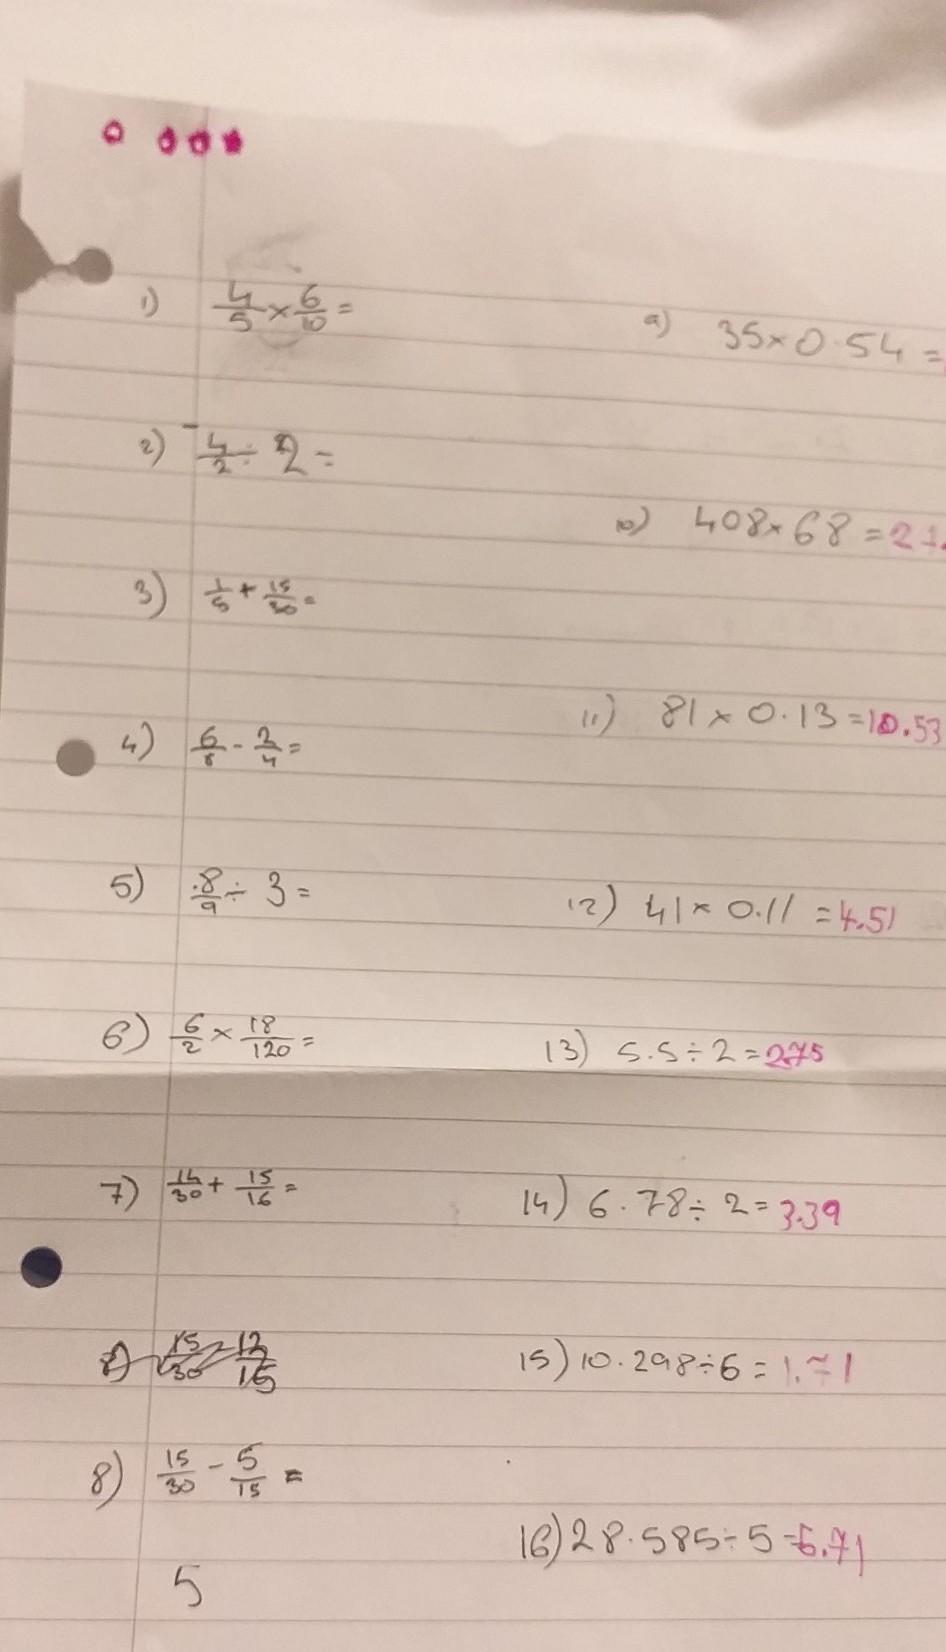 1) 4/5 × 6/10 =
9) 35 × 0.54 =
2) -4/2 ÷ 2 =
10) 408 × 68 =
3) 1/5 + 15/30 =
11) 81 × 0.13 = 10.53
4) 6/8 - 2/4 =
5) 8/9 ÷ 3 =
12) 41 × 0.11 = 4.51
6) 6/2 × 18/120 =
13) 5.5 ÷ 2 = 2.75
7) 14/30 + 15/16 =
14) 6.78 ÷ 2 = 3.39
15) 10.298 ÷ 6 =
8) 15/30 - 5/15 =
16) 28.585 ÷ 5 =
5